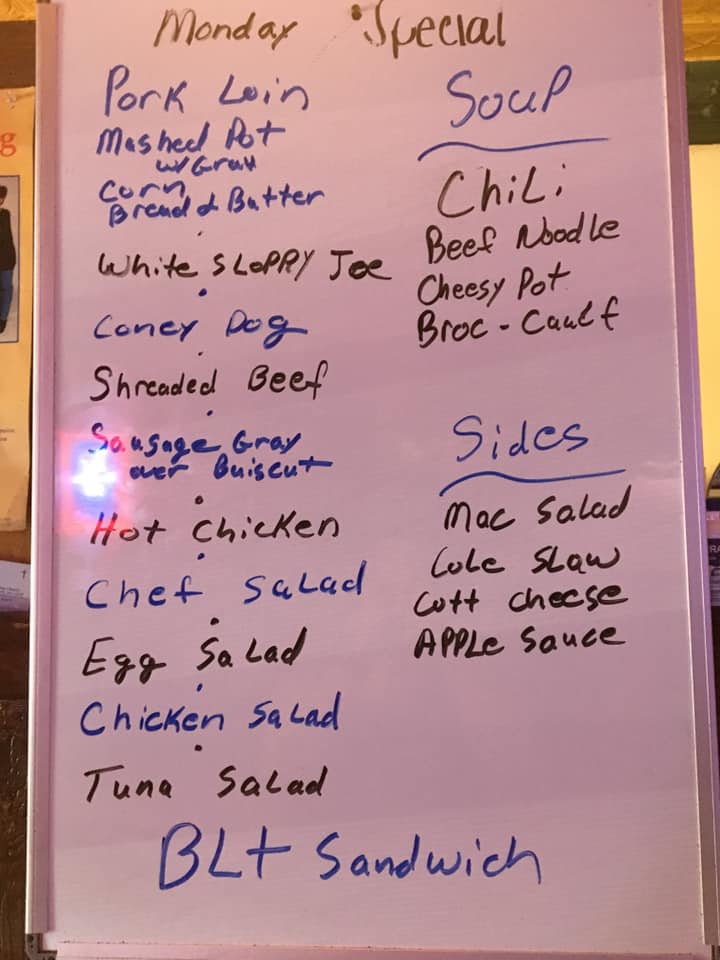 Monday Special
Pork Loin
Mashed Pot
w/ Grav
Corn
Bread & Butter
White SLOPPY Joe
Coney Dog
Shreaded Beef
Sausage Gray
over Buiscut
Hot Chicken
Chef Salad
Egg Salad
Chicken Salad
Tuna Salad
BLt Sandwich
Soup
Chili
Beef Noodle
Cheesy Pot
Broc - Caulf
Sides
Mac Salad
Cole Slaw
Cott Cheese
APPLe Sauce
g